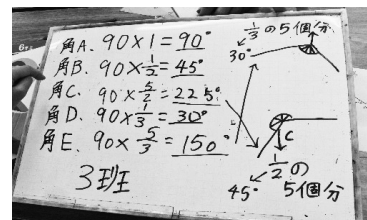 角A. 90×1=90°
角B. 90×1/2=45°
角C. 90×5/2=225°
角D. 90×1/3=30°
角E. 90×5/3=150°
3班
1/3の5個分
30°
C
1/2の
5個分
45°